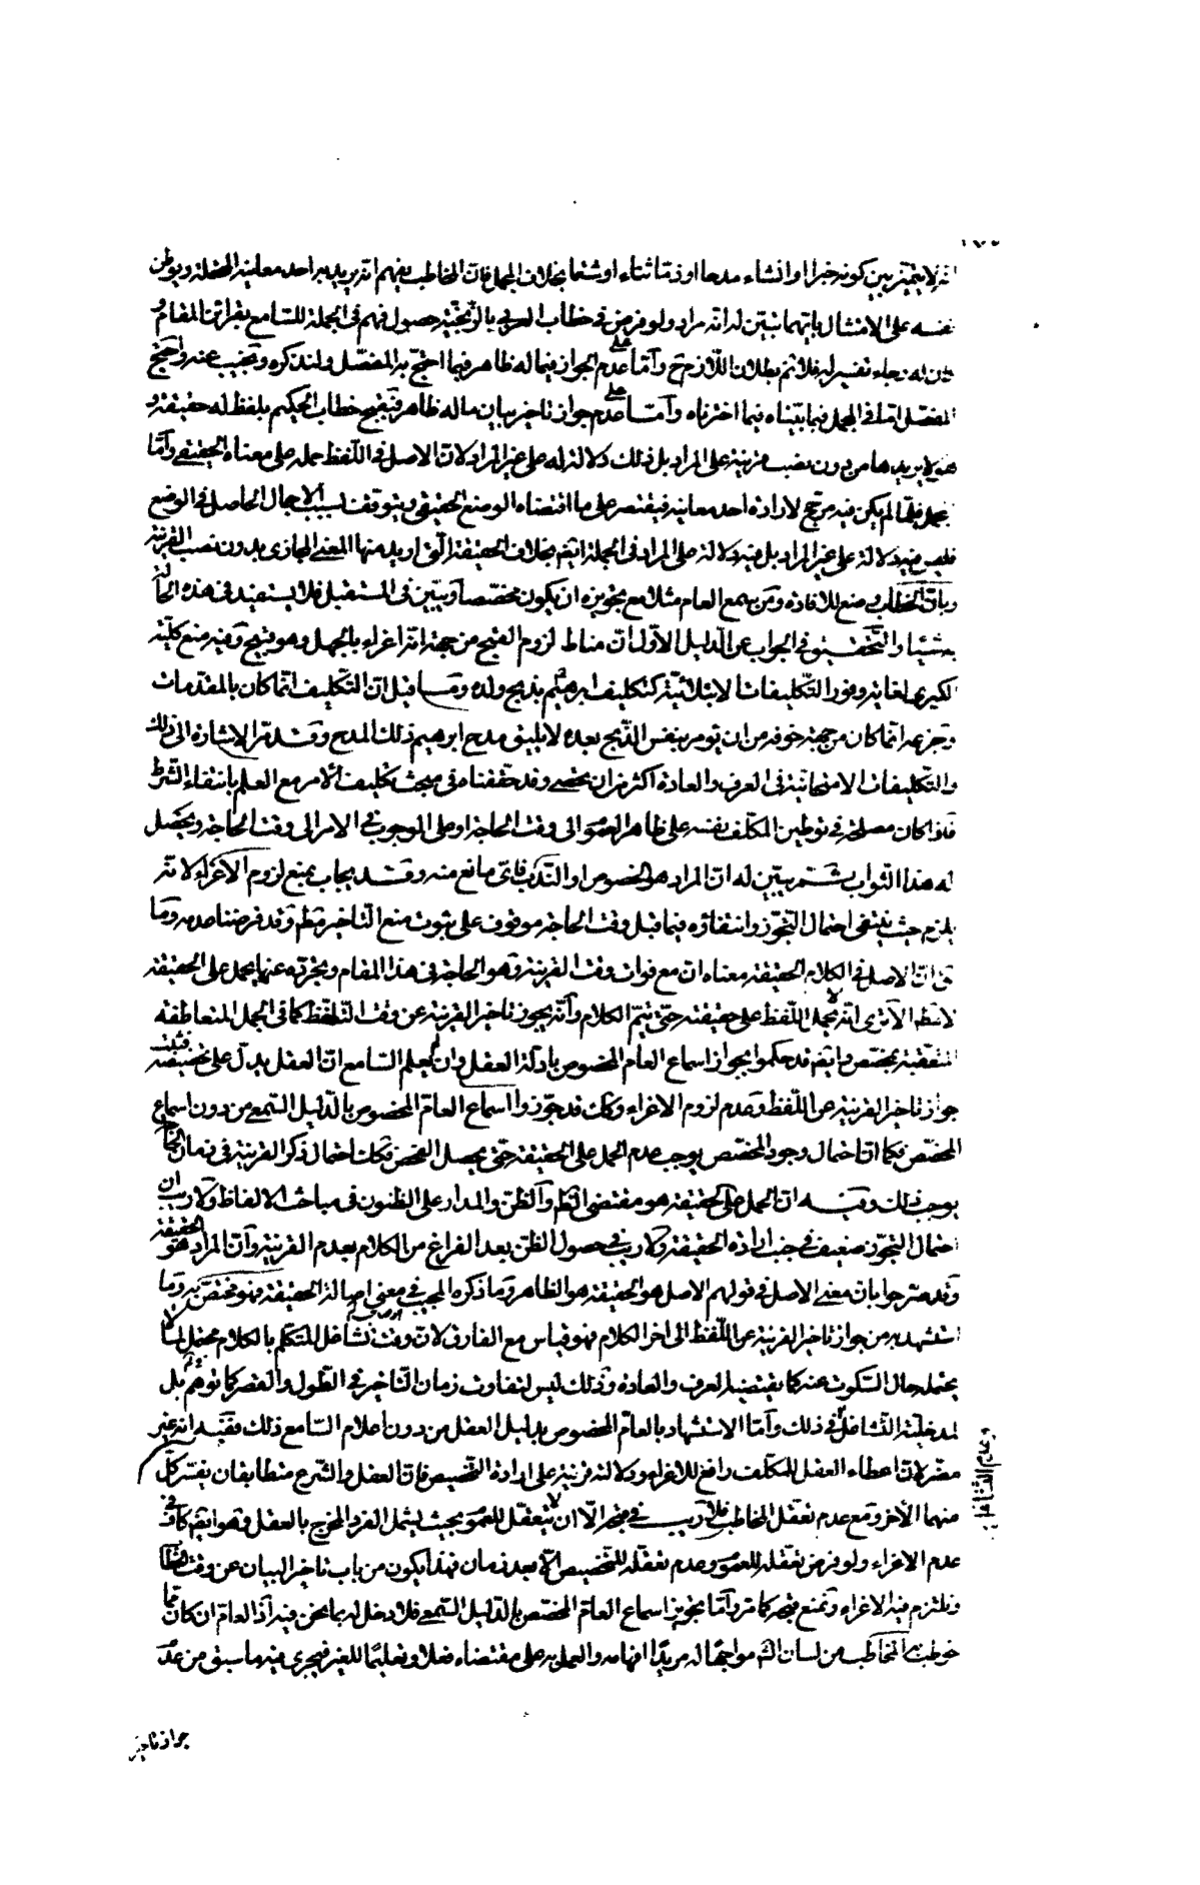 انه لا يتميز بين كونه خبرا او انشاء مدحا او ذما ثناء او شتما بخلاف المجمل فان المخاطب يفهم انه يريد به احد معانيه المحتملة ويوطن
نفسه على الامتثال بايتهما تبين له انه مراد ولو فرض في خطاب العربي بالزنجية حصول فهم في الجملة للسامع بقرائن المقام و
تفسير له فلا ثم بطلان اللازم ح واما على عدم الجواز فيما له ظاهر فيما احتج به المفصل ولنذكره ونجيب عنه واحتج
المفصل اما في المجمل فبما بيناه فيما اخترناه واما على عدم جواز تاخير بيان ما له ظاهر فبقبح خطاب الحكيم بلفظ له حقيقة و
هو لا يريدها من دون نصب قرينة على المراد بل ذلك دلالة له على غير المراد لان الاصل في اللفظ حمله على معناه الحقيقي واما
المجمل فلما لم يكن فيه مرجح لارادة احد معانيه فيقتصر على ما اقتضاه الوضع الحقيقي ويتوقف بسبب الاجمال الحاصل في الوضع
فليس فيه دلالة على غير المراد بل فيه دلالة على المراد في الجملة ايضا بخلاف الحقيقة التي اريد منها المعنى المجازي بدون نصب القرينة
وبان الخطاب وضع للافادة ومن سمع العام مثلا مع تجويزه ان يكون مخصصا ويبين في المستقبل فلا يستفيد في هذه الحالة
به شيئا والتحقيق في الجواب عن الدليل الاول ان مناط لزوم القبح من جهة انه اغراء بالجهل وهو قبيح وفيه منع كلية
الكبرى لغاية وفور التكليفات الابتلائية كتكليف ابرهيم بذبح ولده وما قيل ان التكليف انما كان بالمقدمات
وجزعه انما كان من جهة خوفه من ان يؤمر بنفس الذبح بعده لا يليق مدح ابرهيم ذلك المدح وقد مر الاشارة الى ذلك
والتكليفات الامتحانية في العرف والعادة اكثر من ان يحصى وقد حققناه في مبحث تكليف الامر مع العلم بانتفاء الشرط
فاذا كان مصلحة في توطين المكلف نفسه على ظاهر العموم الى وقت الحاجة او على الوجوب في الامر الى وقت الحاجة ويحصل
له هذا الثواب ثم يتبين له ان المراد هو الخصوص او الندب فاى مانع منه وقد يجاب بمنع لزوم الاغراء لانه
يلزم حيث ينتفي احتمال التجوز وانتفاؤه فيما قبل وقت الحاجة موقوف على ثبوت منع التاخير مطلقا وقد فرضنا عدمه وما
ان الاصل في الكلام الحقيقة معناه ان مع فوات وقت القرينة وهو الحاجة في هذا المقام وتجرده عنها يحمل على الحقيقة
لا مطلقا الا ترى انه لا يحمل اللفظ على حقيقته حتى يتم الكلام وانه يجوز تاخير القرينة عن وقت التلفظ كما في الجمل المتعاطفة
المتعقبة بمخصص وايضا قد حكموا بجواز اسماع العام المخصوص بادلة العقل وان لم يعلم السامع ان العقل يدل على تخصيصه فثبت
جواز تاخير القرينة عن اللفظ وعدم لزوم الاغراء وكذلك قد جوزوا اسماع العام المخصوص بالدليل السمعي من دون اسماع
المخصص فكما ان احتمال وجود المخصص يوجب عدم الحمل على الحقيقة حتى يحصل الفحص فكذلك احتمال ذكر القرينة في زمان الحاجة
يوجب ذلك وفيه ان الحمل على الحقيقة هو مقتضى الظاهر والظن والمدار على الظنون في مباحث الالفاظ ولا ريب ان
احتمال التجوز ضعيف في جنب ارادة الحقيقة ولا ريب في حصول الظن بعد الفراغ من الكلام بعدم القرينة وان المراد هو الحقيقة
وقد صرحوا بان معنى الاصل في قولهم الاصل هو الحقيقة هو الظاهر وما ذكره المجيب في معنى اصالة الحقيقة فهو مختص به وما
استشهد به من جواز تاخير القرينة عن اللفظ الى اخر الكلام فهو قياس مع الفارق لان وقت تشاغل المتكلم بالكلام محتمل لما لا
يحتمله حال السكوت عنه كما يقتضيه العرف والعادة وذلك ليس لتفاوت زمان التاخير في الطول والقصر كما توهم بل
لمدخلية التشاغل في ذلك واما الاستشهاد بالعام المخصوص بدليل العقل من دون اعلام السامع ذلك ففيه انه غير
مضر لان اعطاء العقل للمكلف رافع للاغراء ودلالة قرينة على ارادة التخصيص فان العقل والشرع متطابقان يفسر كل
منهما الاخر ومع عدم تعقل المخاطب فلا ريب في قبحه الا ان لا يتعقل للعموم بحيث يشمل الفرد المخرج بالعقل وهو ايضا كاف في
عدم الاغراء ولو فرض تعقله للعموم وعدم تعقله للتخصيص الا بعد زمان فهذا يكون من باب تاخير البيان عن وقت الخطاب
ونلتزم فيه الاغراء ونمنع قبحه كما مر واما تجويز اسماع العام المخصص بالدليل السمعي فلا دخل له بما نحن فيه اذ العام ان كان مما
خوطب به المخاطب من لسان الشارع مواجها له مريدا افهامه والعمل به على مقتضاه فعلا وتعليما للغير فيجرى فيه ما سبق من عدم
وعدم التشاغل
جواز تاخير